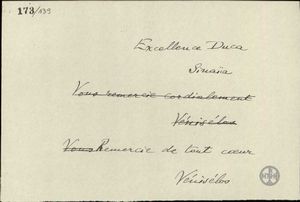 173/139
Excellence Duca
Sinaïa
Vous remercie cordialement
Vénisélos
Vous Remercie de tout cœur
Vénisélos